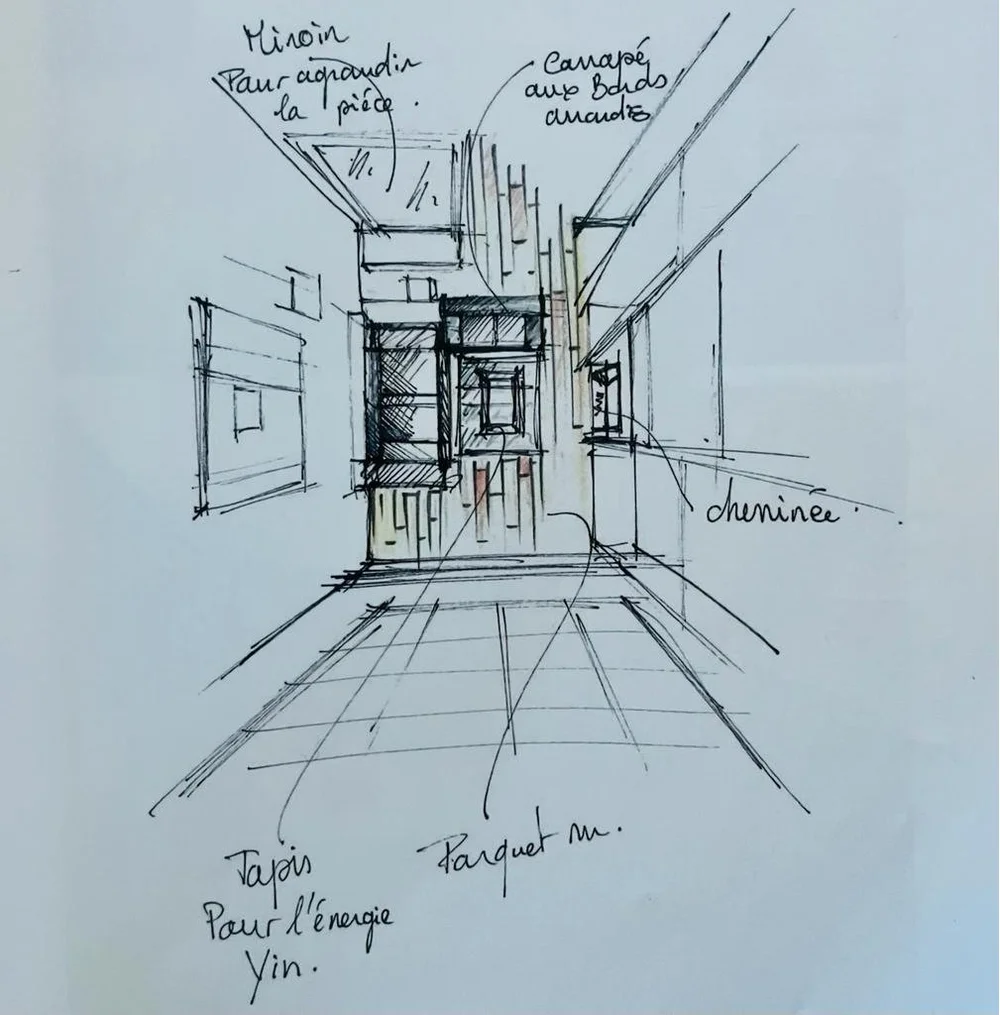 Miroir
Pour agrandir
la pièce.
Canapé
aux Bords
arrondis
cheminée.
Tapis
Pour l'énergie
Yin.
Parquet